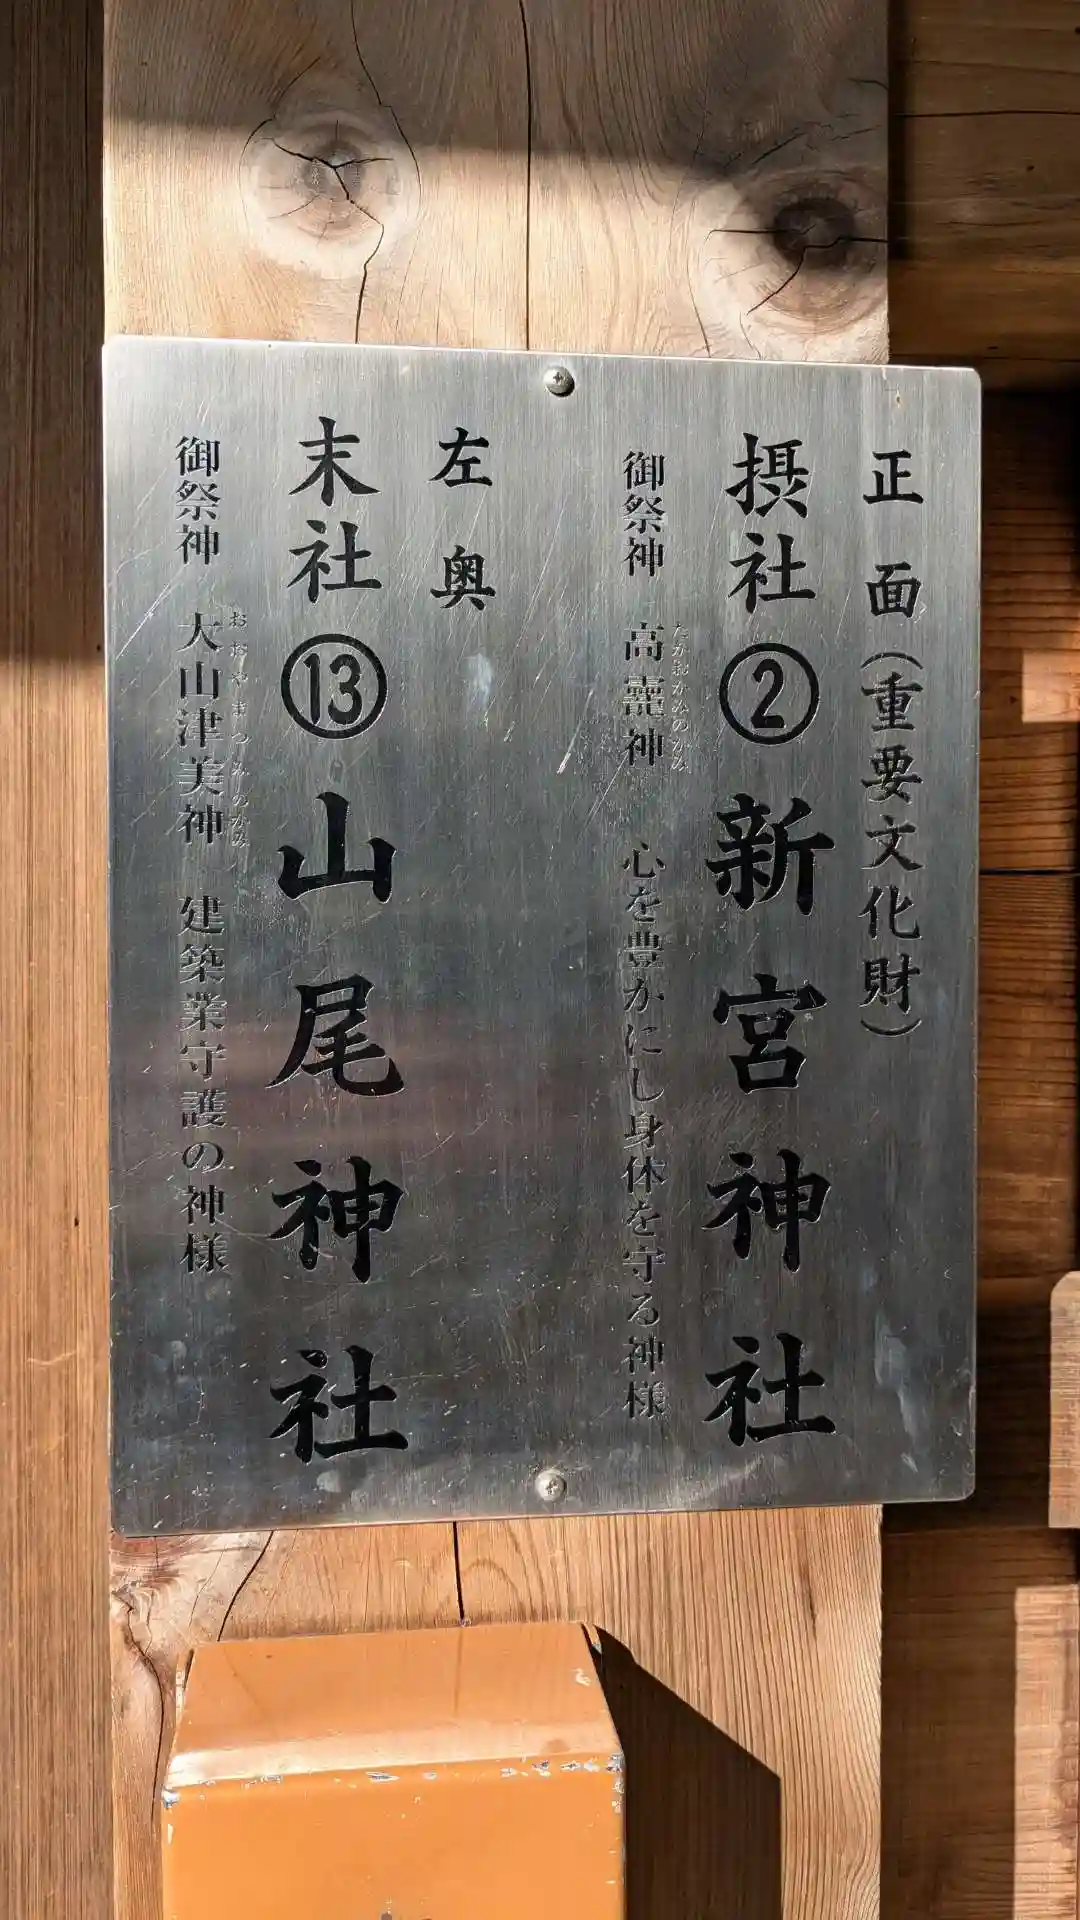 正面(重要文化財)
摂社②新宮神社
たかおかみのかみ
御祭神 高龗神 心を豊かにし身体を守る神様
左奥
末社⑬山尾神社
おおやまつみのかみ
御祭神 大山津美神 建築業守護の神様